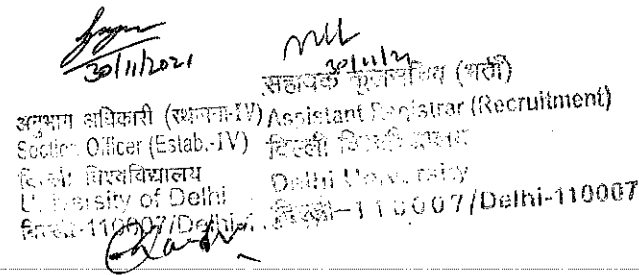 30/11/2021
अनुभाग अधिकारी (स्थापना-IV)
Section Officer (Estab.-IV)
दिल्ली विश्वविद्यालय
University of Delhi
दिल्ली-110007/Delhi-
30/11/21
सहायक कुलसचिव (भर्ती)
Assistant Registrar (Recruitment)
दिल्ली विश्वविद्यालय
Delhi University
दिल्ली-110007/Delhi-110007